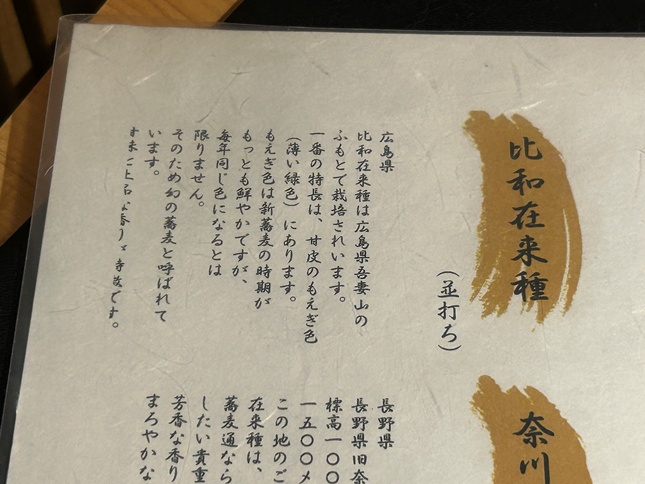 比和在来種
(並打ち)
広島県
比和在来種は広島県吾妻山の
ふもとで栽培されいます。
一番の特長は、甘皮のもえぎ色
(薄い緑色)にあります。
もえぎ色は新蕎麦の時期が
もっとも鮮やかですが、
毎年同じ色になるとは
限りません。
そのため幻の蕎麦と呼ばれて
います。
奈川
長野県
長野県旧奈
標高一〇〇
一五〇〇メ
この地のご
在来種は、
蕎麦通なら
したい貴重
芳香な香り
まろやかな